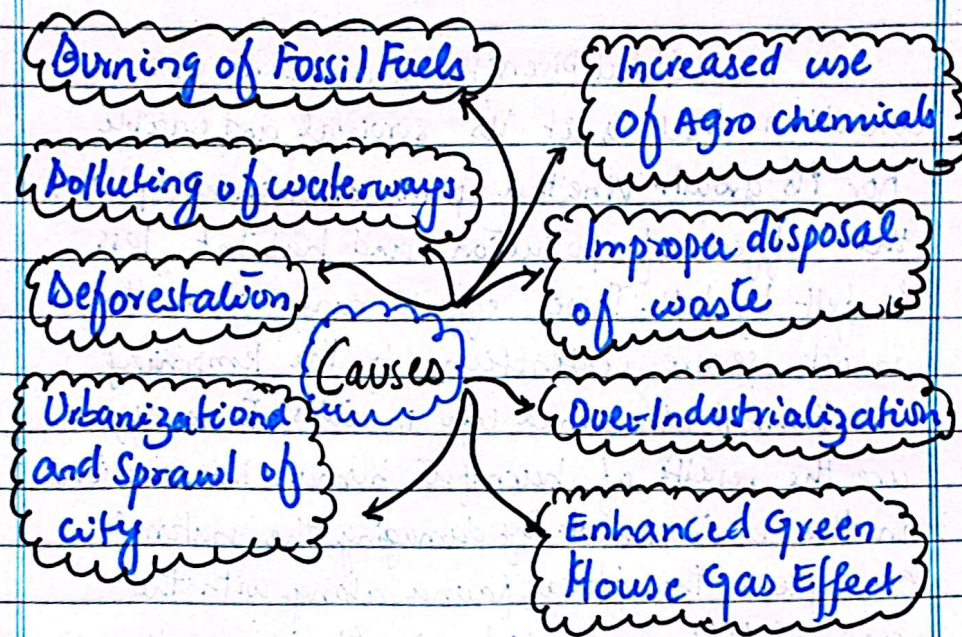 Burning of Fossil Fuels
Polluting of waterways
Deforestation
Urbanizationd
and Sprawl of
city
Causes
Increased use
of Agro chemicals
Improper disposal
of waste
Over-Industrialization
Enhanced Green
House Gas Effect